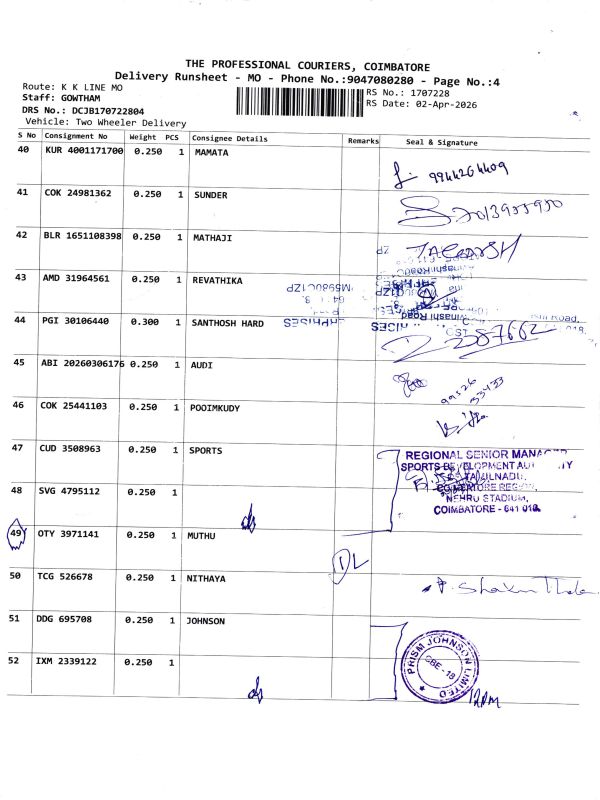 THE PROFESSIONAL COURIERS, COIMBATORE
Delivery Runsheet - MO - Phone No.:9047080280 - Page No.:4
Route: K K LINE MO
Staff: GOWTHAM
DRS No.: DCJB170722804
Vehicle: Two Wheeler Delivery
RS No.: 1707228
RS Date: 02-Apr-2026
S No Consignment No Weight PCS Consignee Details Remarks Seal & Signature
40 KUR 4001171700 0.250 1 MAMATA
9944264409
41 COK 24981362 0.250 1 SUNDER
42 BLR 1651108398 0.250 1 MATHAJI
43 AMD 31964561 0.250 1 REVATHIKA
44 PGI 30106440 0.300 1 SANTHOSH HARD
45 ABI 20260306176 0.250 1 AUDI
46 COK 25441103 0.250 1 POOIMKUDY
47 CUD 3508963 0.250 1 SPORTS
REGIONAL SENIOR MANAGER
SPORTS DEVELOPMENT AUTHORITY
TAMILNADU,
COIMBATORE REGION,
NEHRU STADIUM,
COIMBATORE - 641 018.
48 SVG 4795112 0.250 1
49 OTY 3971141 0.250 1 MUTHU DL
50 TCG 526678 0.250 1 NITHAYA
51 DDG 695708 0.250 1 JOHNSON
PRISM JOHNSON LIMITED
CBE - 18
52 IXM 2339122 0.250 1